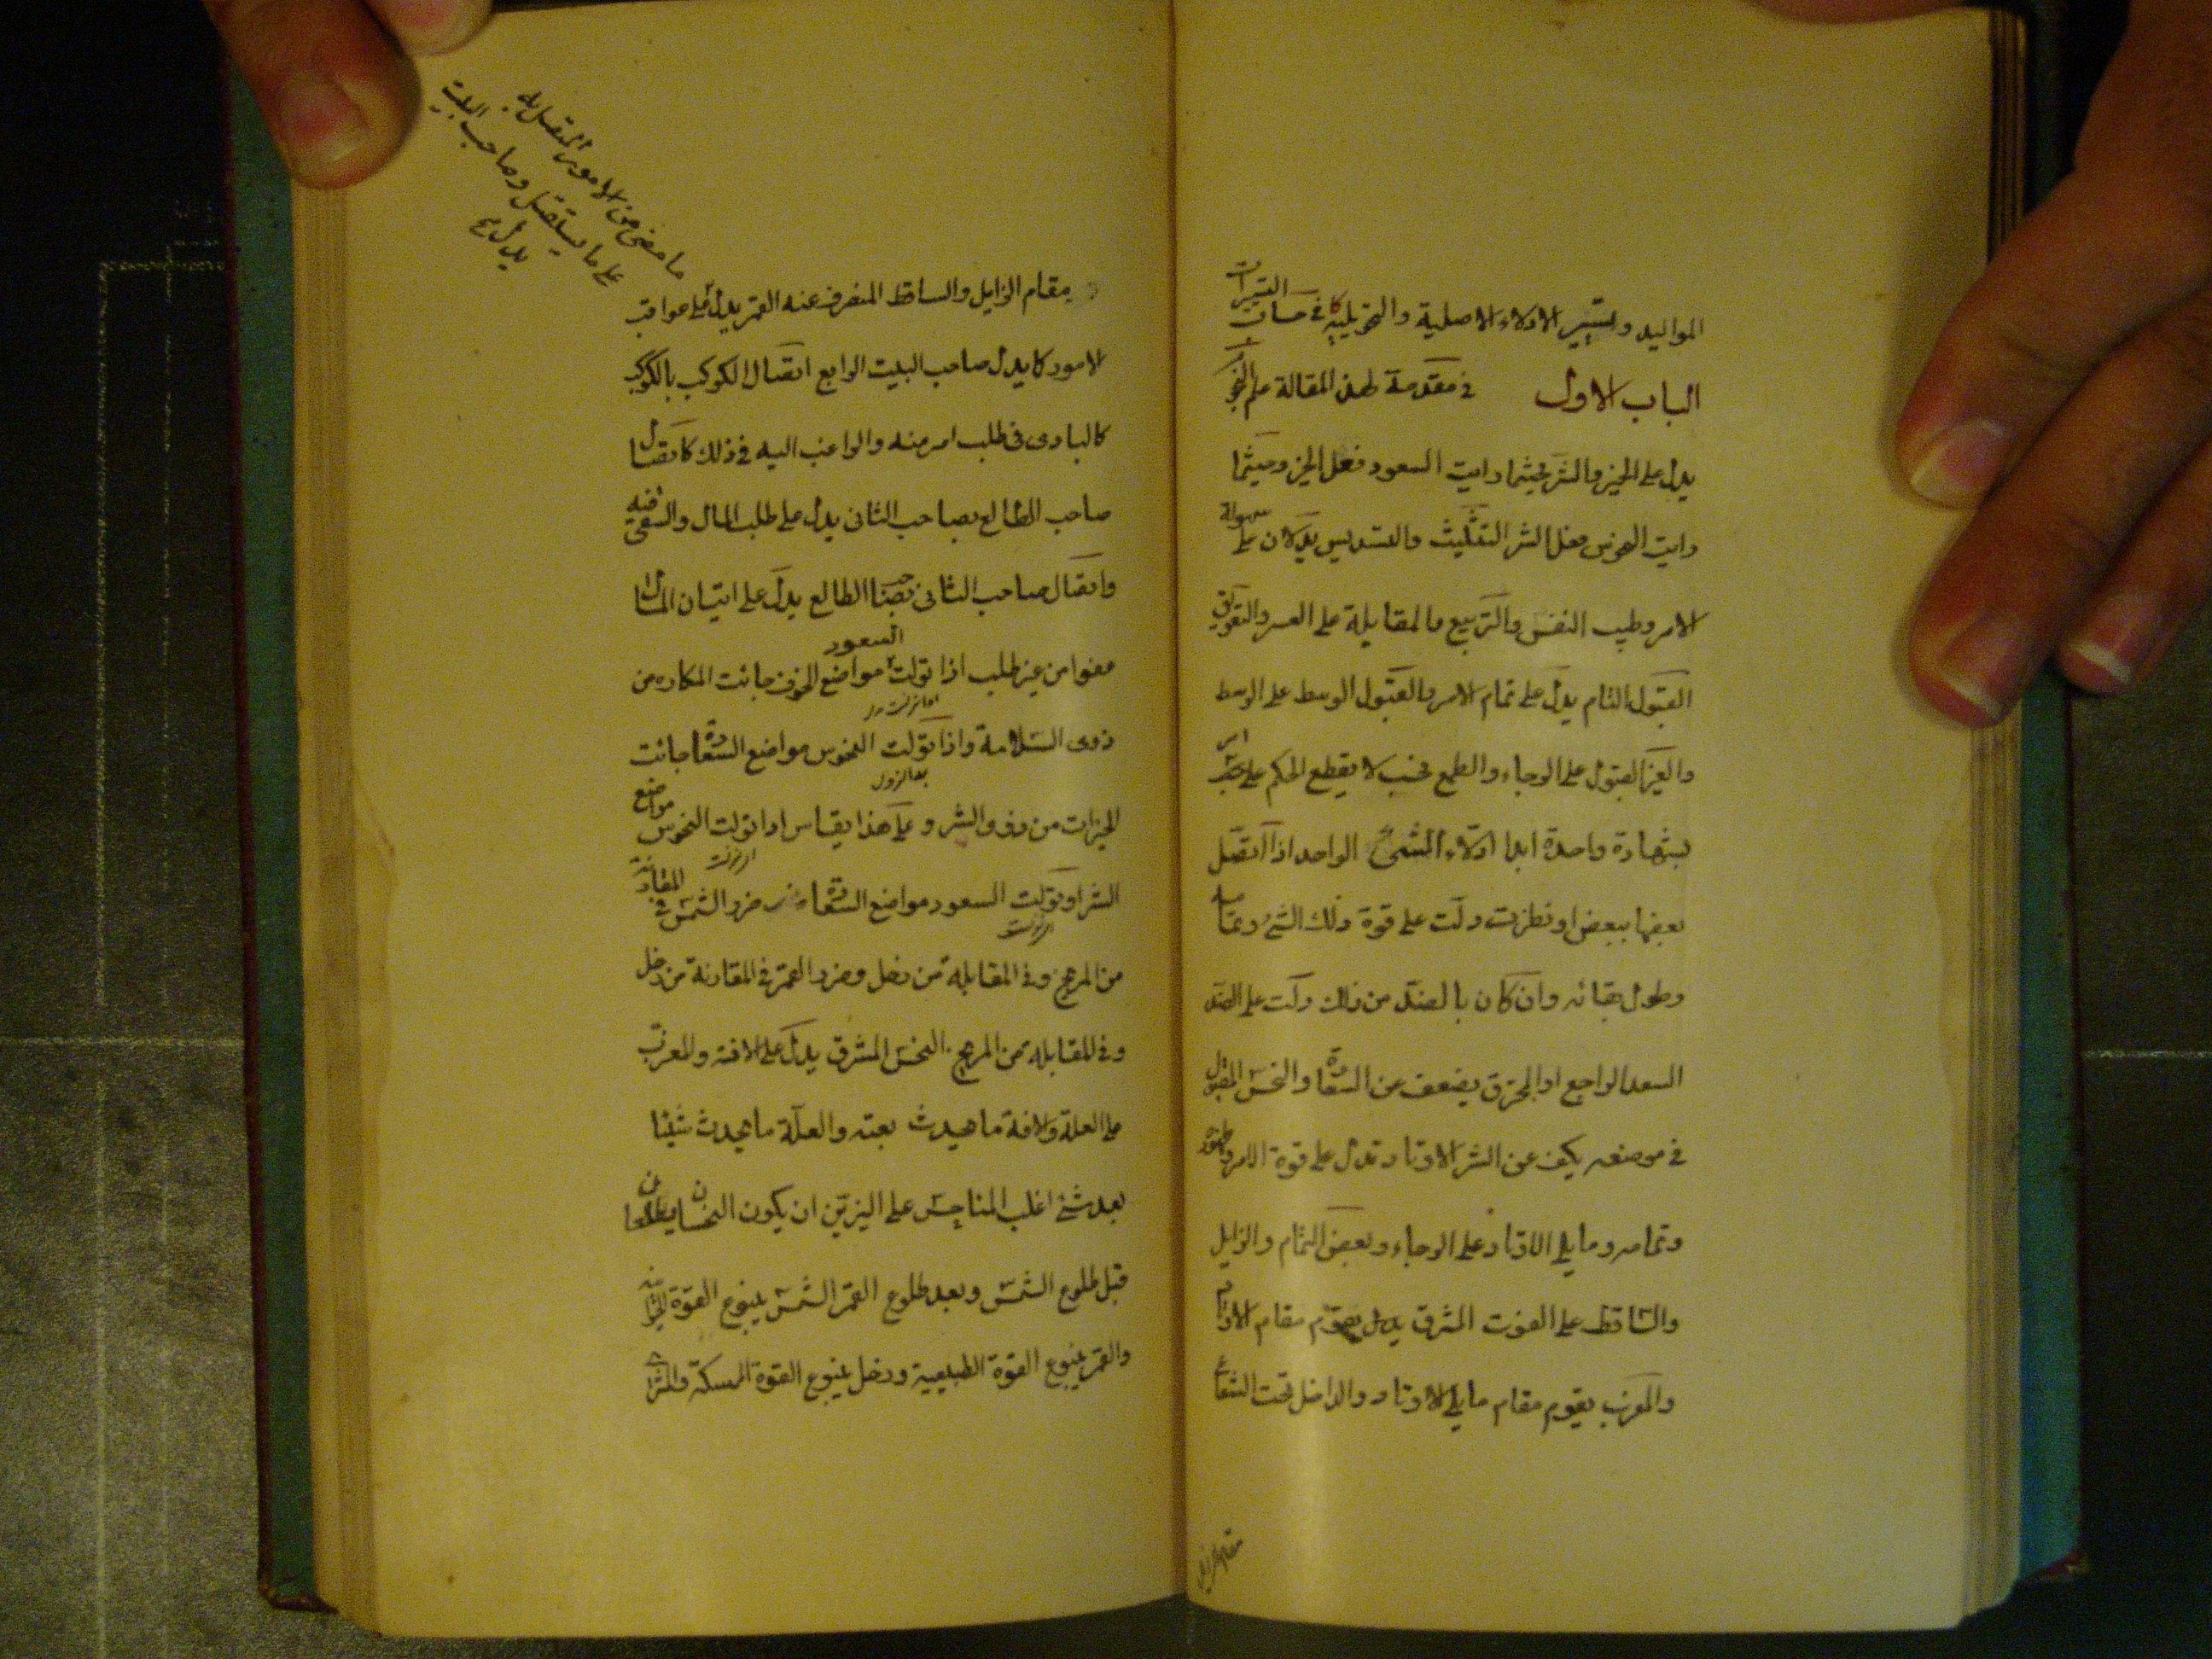 المواليد وتسيير الادلاء الاصلية والتحويلية في حسابات التسييرات
الباب الاول في مقدمة لهذه المقالة علم النجوم
يدل على الخير والشر فحيثما رايت السعود فقل الخير وحيثما
رايت النحوس فقل الشر التثليث والتسديس يدلان على سهولة
الامر وطيب النفس والتربيع والمقابلة على العسر والتعويق
القبول التام يدل على تمام الامر والقبول الوسط على الوسط
والغير القبول على الرجاء والطمع فحسب لا يقطع الحكم على
بشهادة واحدة ابدا ادلاء الشئ الواحد اذا اتصل
بعضها ببعض او نظرت دلت على قوة ذلك الشئ وتمامه
وطول بقائه وان كان بالضد من ذلك دلت على الضد
السعد الراجع او المحترق يضعف عن السعادة والنحس المقبول
في موضعه يكف عن الشر الاوتاد تدل على قوة الامر وظهوره
وتمامه وما يلي الاوتاد على الرجاء وبعض التمام والزايل
والساقط على الفوت المشرق يقوم مقام الاوتاد
والمغرب يقوم مقام ما يلي الاوتاد والداخل تحت الشعاع
مقام الزايل
مقام الزايل والساقط المنصرف عنه القمر يدل على عواقب
ما مضى من الامور المتصل به
يدل على ما يستقبل وصاحب البيت
الامور كما يدل صاحب البيت الرابع اتصال الكوكب بالكوكب
كالبادى فى طلب امر منه والراغب اليه في ذلك كاتصال
صاحب الطالع بصاحب الثانى يدل على طلب المال والسعى فيه
واتصال صاحب الثانى بصاحب الطالع يدل على اتيان المال
عفوا من غير طلب اذا تولت السعود مواضع الخوف جائت المكاره من
ذوى السلامة واذا تولت النحوس مواضع السعادة جائت
الخيرات من ذوى الشر وعلى هذا يقاس اذا تولت النحوس مواضع
الشر او تولت السعود مواضع السعادة ضرر الشمس في المقارنة
من المريخ وفى المقابلة من زحل وضرر القمر في المقارنة من زحل
وفى المقابلة من المريخ النحس المشرق يدل على الافة والمغرب
على العلة والافة ما يحدث بغتة والعلة ما يحدث شيئا
بعد شئ اغلب المناحس على النيرين ان يكون النحسان يطلعان
قبل طلوع الشمس وبعد طلوع القمر الشمس ينبوع القوة الحيوانية
والقمر ينبوع القوة الطبيعية وزحل ينبوع القوة الممسكة والمشترى